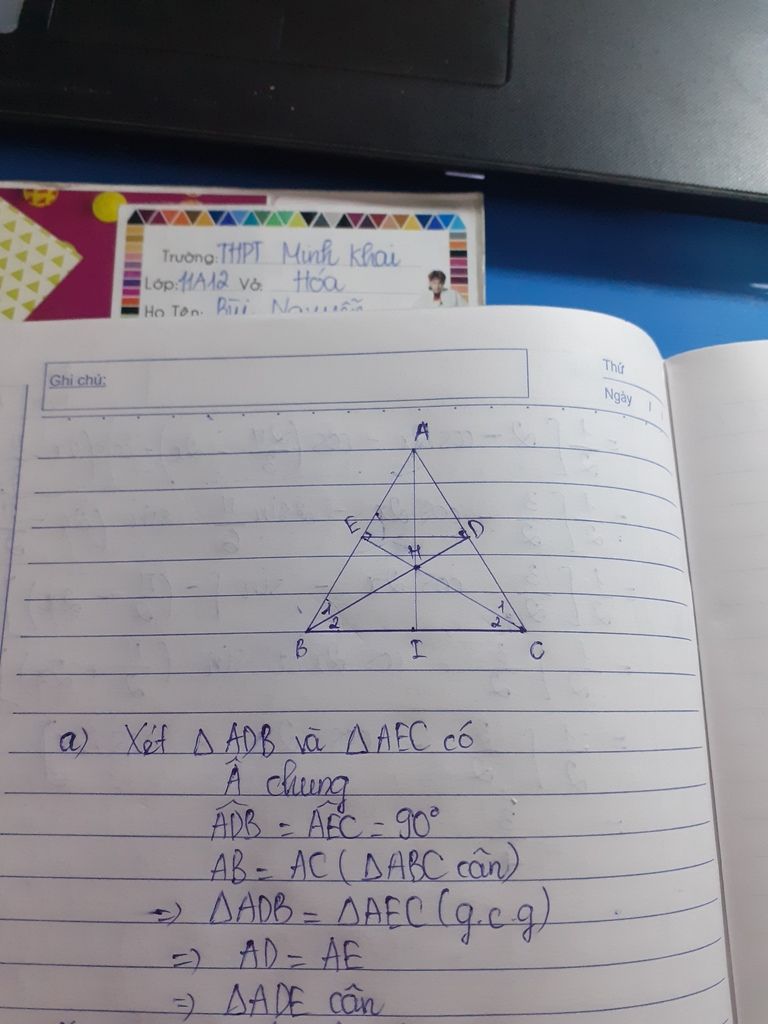 Trường: THPT Minh Khai
Lớp: 11A12 Vở: Hóa
Họ Tên: Bùi Nguyễn
Ghi chú:
Thứ
Ngày / /
A
E D
H
1 1
2 2
B I C
a) Xét △ADB và △AEC có
Â chung
ADB̂ = AEĈ = 90°
AB = AC (△ABC cân)
=> △ADB = △AEC (g.c.g)
=> AD = AE
=> △ADE cân